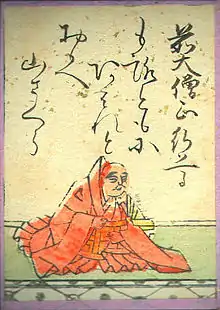 前大僧正行尊
もろとも尓
あはれと
おもへ
山さくら